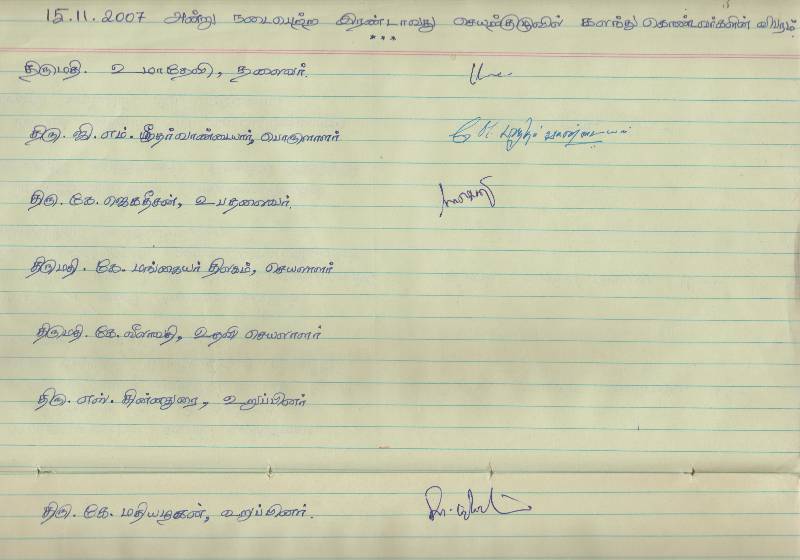 15.11.2007 அன்று நடைபெற்ற இரண்டாவது செயற்குழுவில் கலந்து கொண்டவர்களின் விபரம்
***
திருமதி. உமாதேவி, தலைவர்.
திரு. ஜி. எம். ஸ்ரீதர்வாண்டையார், பொருளாளர்
திரு. கே. ஜெகதீசன், உபதலைவர்.
திருமதி. கே. மங்கையர் திலகம், செயலாளர்
திருமதி. கே. லீலாவதி, உதவி செயலாளர்
திரு. எஸ். சின்னதுரை, உறுப்பினர்
திரு. கே. மதியழகன், உறுப்பினர்.